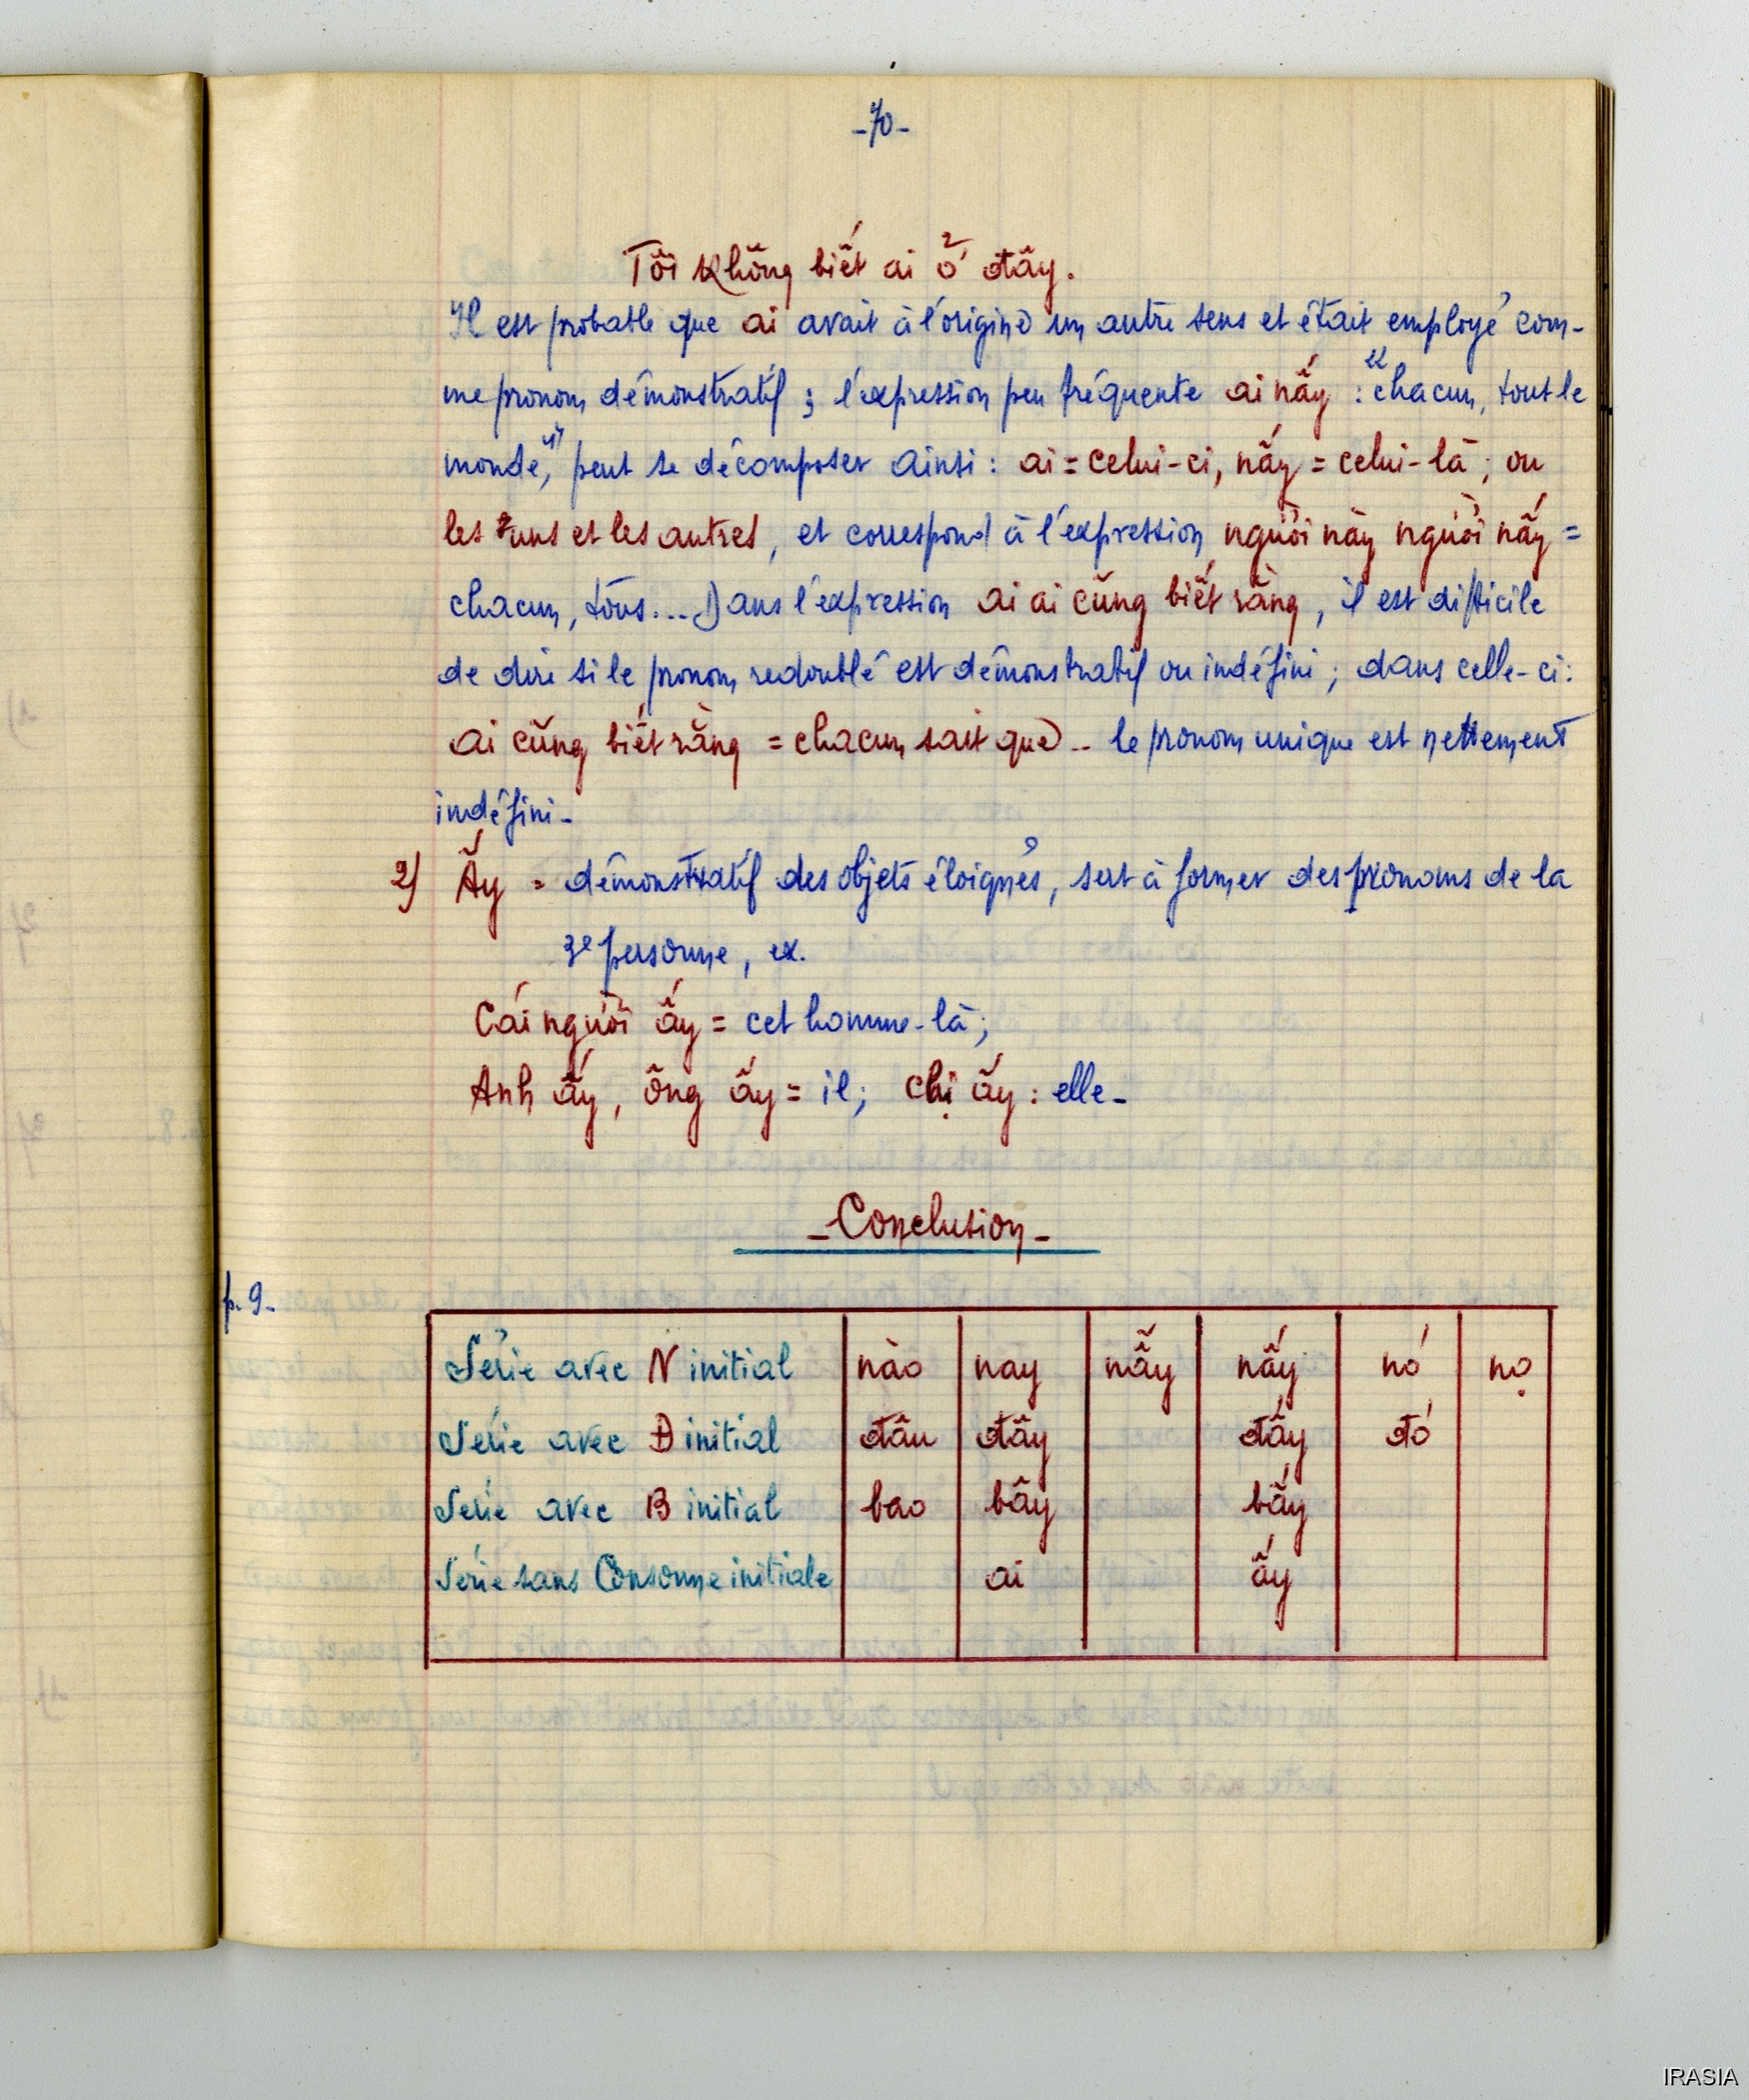 -70-
Tôi không biết ai ở đây.
Il est probable que ai avait à l'origine un autre sens et était employé com-
me pronom démonstratif ; l'expression peu fréquente ai nấy : "chacun, tout le
monde", peut se décomposer ainsi : ai = celui-ci, nấy = celui-là ; ou
les uns et les autres, et correspond à l'expression người này người nấy =
chacun, tous... Dans l'expression ai ai cũng biết rằng, il est difficile
de dire si le pronom redoublé est démonstratif ou indéfini ; dans celle-ci :
ai cũng biết rằng = chacun sait que.. le pronom unique est nettement
indéfini -
2) Ấy = démonstratif des objets éloignés, sert à former des pronoms de la
3e personne, ex.
Cái người ấy = cet homme-là ;
Anh ấy, ông ấy = il ; chị ấy : elle -
- Conclusion -
p. 9.
Série avec N initial nào nay nẫy nấy nó nọ
Série avec Đ initial đâu đây đấy đó
Série avec B initial bao bây bấy
Série sans Consonne initiale ai ấy
IRASIA